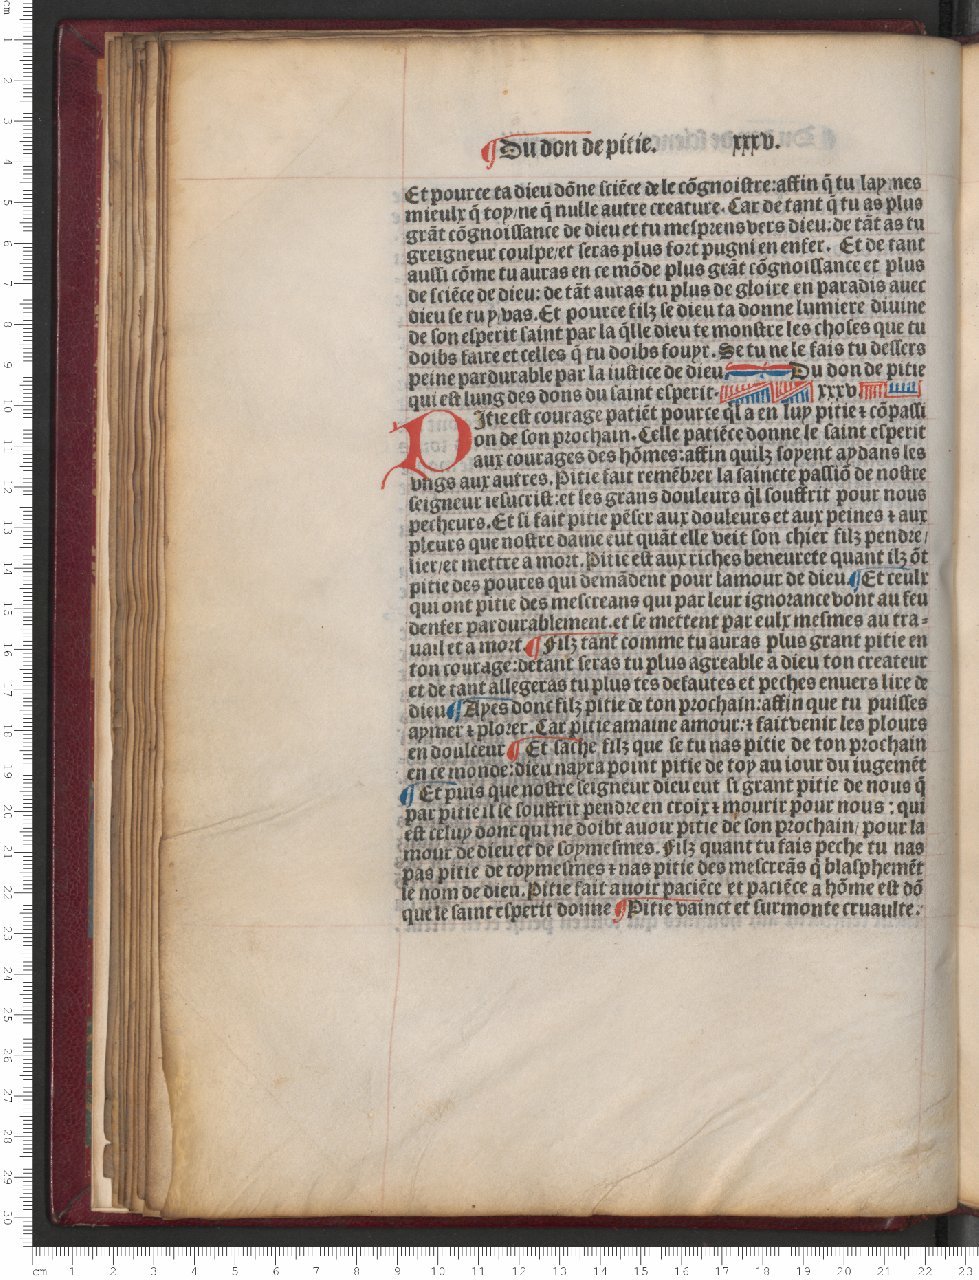 ¶Du don de pitie. xxxv.
Et pource ta dieu dõne sciẽce de le cõgnoistre:affin q̃ tu laymes
mieulx q̃ toy/ne q̃ nulle autre creature. Car de tant q̃ tu as plus
grãt cõgnoissance de dieu et tu mesprens vers dieu:de tãt as tu
greigneur coulpe/et seras plus fort pugni en enfer. Et de tant
aussi cõme tu auras en ce mõde plus grãt cõgnoissance et plus
de sciẽce de dieu: de tãt auras tu plus de gloire en paradis auec
dieu se tu y vas. Et pource filz se dieu ta donne lumiere diuine
de son esperit saint par la q̃lle dieu te monstre les choses que tu
doibs faire et celles q̃ tu doibs fouyr. Se tu ne le fais tu dessers
peine pardurable par la iustice de dieu. Du don de pitie
qui est lung des dons du saint esperit. xxxv
PItie est courage patiẽt pource q̃l a en luy pitie ⁊ cõpassi
on de son prochain. Celle patiẽce donne le saint esperit
aux courages des hõmes:affin quilz soyent aydans les
vngs aux autres. Pitie fait remẽbrer la saincte passiõ de nostre
seigneur iesucrist:et les grans douleurs q̃l souffrit pour nous
pecheurs. Et si fait pitie pẽser aux douleurs et aux peines ⁊ aux
pleurs que nostre dame eut quãt elle veit son chier filz pendre/
lier/et mettre a mort. Pitie est aux riches beneurete quant ilz õt
pitie des poures qui demãdent pour lamour de dieu ¶Et ceulx
qui ont pitie des mescreans qui par leur ignorance vont au feu
denfer pardurablement.et se mettent par eulx mesmes au tra-
uail et a mort ¶Filz tant comme tu auras plus grant pitie en
ton courage:detant seras tu plus agreable a dieu ton createur
et de tant allegeras tu plus tes defautes et peches enuers lire de
dieu ¶Ayes dont filz pitie de ton prochain:affin que tu puisses
aymer ⁊ plorer. Car pitie amaine amour:⁊ fait venir les plours
en doulceur ¶Et sache filz que se tu nas pitie de ton prochain
en ce monde:dieu nayra point pitie de toy au iour du iugemẽt
¶Et puis que nostre seigneur dieu eut si grant pitie de nous q̃
par pitie il se souffrit pendre en croix ⁊ mourir pour nous : qui
est celuy donc qui ne doibt auoir pitie de son prochain/ pour la
mour de dieu et de soymesmes. Filz quant tu fais peche tu nas
pas pitie de toymesmes ⁊ nas pitie des mescreãs q̃ blasphemẽt
le nom de dieu. Pitie fait auoir paciẽce et paciẽce a hõme est dõ
que le saint esperit donne ¶Pitie vainct et surmonte cruaulte.